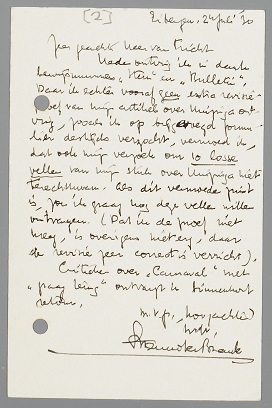 [2] Eibergen, 24 Juli '30
Zeer geachte Heer van Tricht
Heden ontving ik in dank
bewijsnummers "Stem" en "Bulletin".
Daar ik echter vooraf geen extra revisie
proef van mijn artikel over Huizinga ont
ving, zooals ik op bijgevoegd formu-
lier destijds verzocht, vermoed ik,
dat ook mijn verzoek om 10 losse
vellen van mijn stuk over Huizinga niet
terechtkwam. Als dit vermoeden juist
is, zou ik graag nog deze vellen willen
ontvangen. (Dat ik de proef niet
kreeg, is overigens niet erg, daar
de revisie zeer correct is verricht).
Critiek over "Carnaval" met
"paging" ontvangt U binnenkort
retour.
m.v.gr., hoogachtend